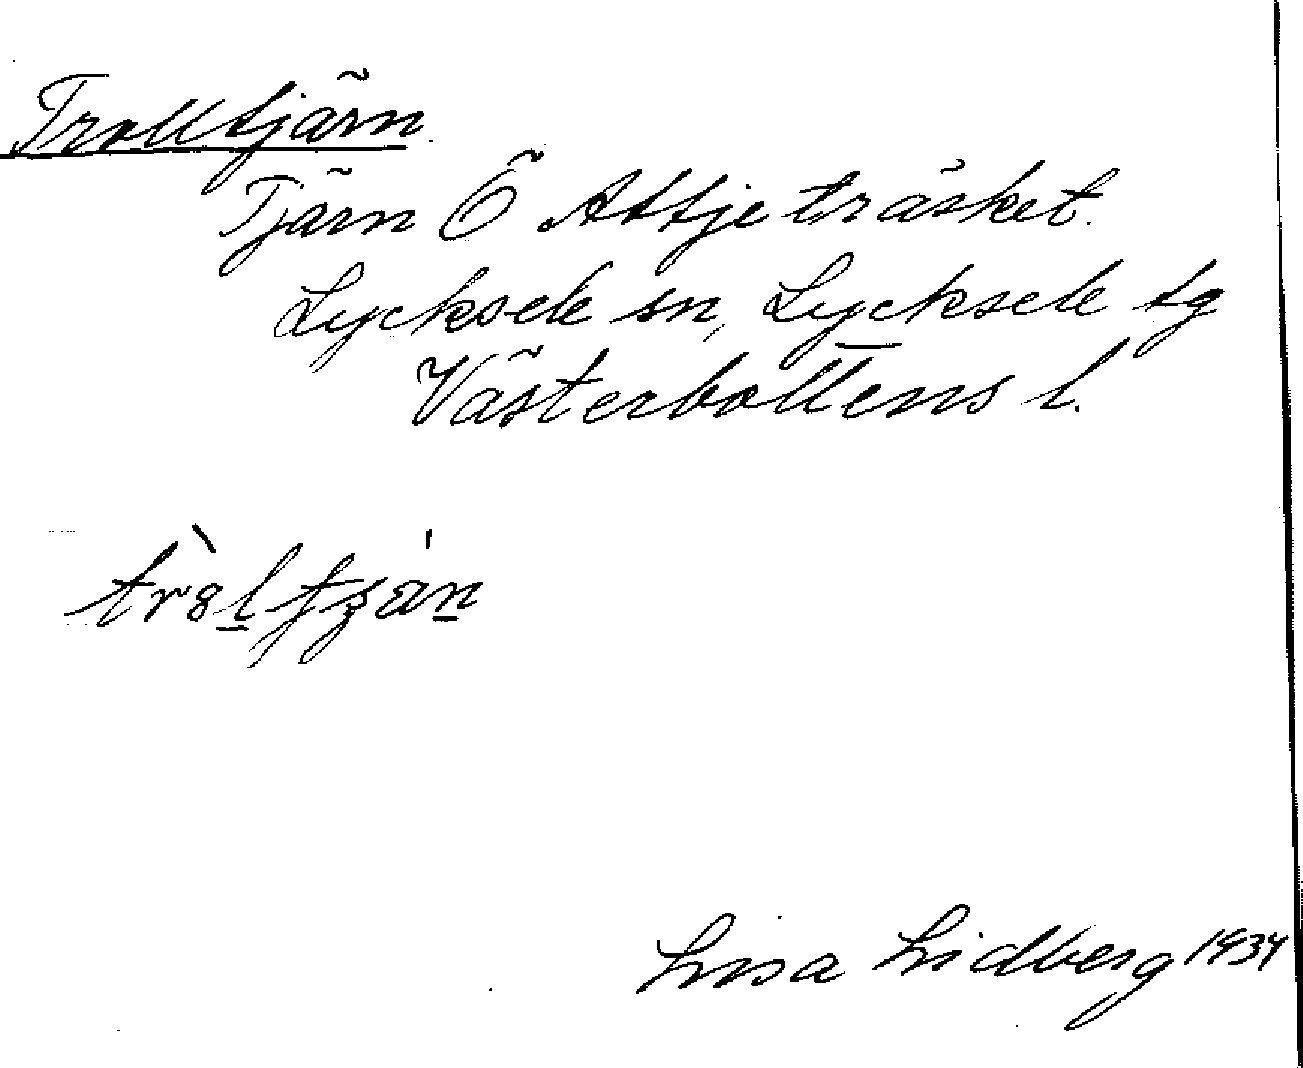 Trolltjärn
Tjärn Ö Attjeträsket.
Lycksele sn, Lycksele tg
Västerbottens l.
Lisa Lidberg 1934